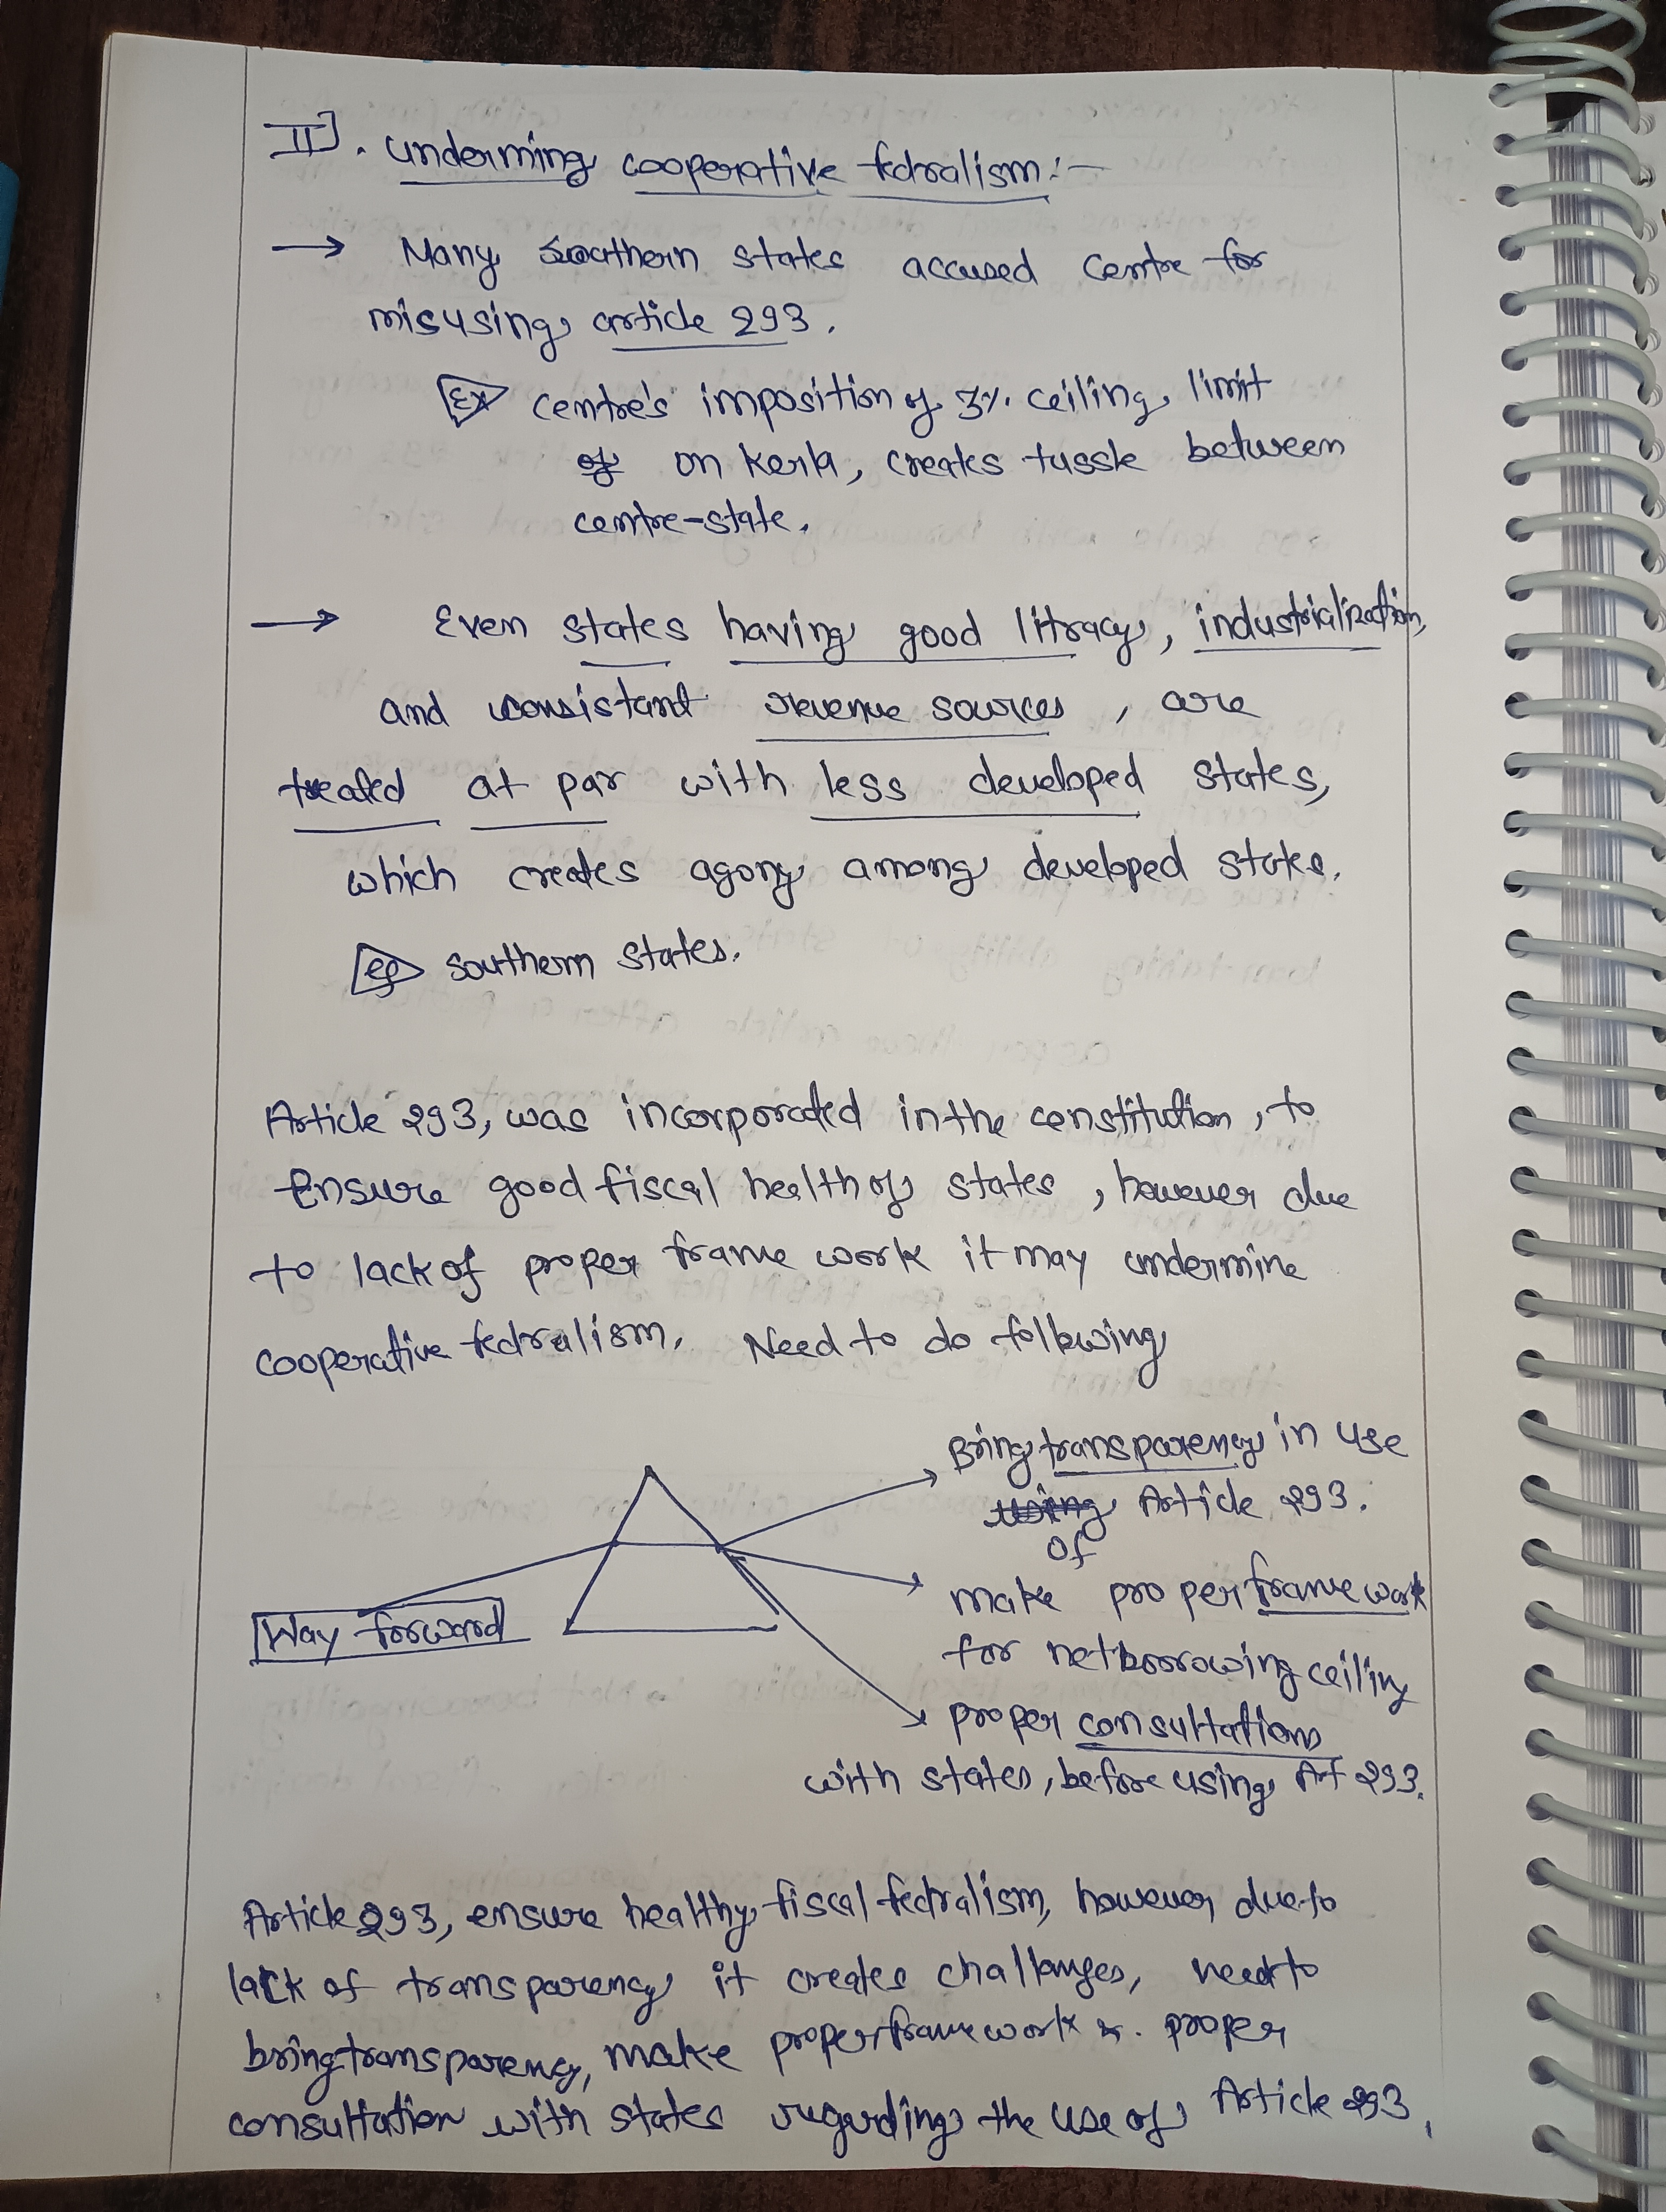 II]. underming cooperative fedralism:-
→ Many southern states accused Centre for
misusing article 293.
Ex centre's imposition of 3% ceiling limit
of on Kerla, creates tussle between
centre-state.
→ Even states having good litracy, industrialization,
and consistant revenue sources, are
treated at par with less developed states,
which creates agony among developed states.
eg southern states.
Article 293, was incorporated in the constitution, to
Ensure good fiscal health of states, however due
to lack of proper frame work it may undermine
cooperative fedralism. Need to do following
Way forward
Bring transparency in use
using Article 293.
of
make proper frame work
for net borrowing ceiling
proper consultations
with states, before using Art 293.
Article 293, ensure healthy fiscal fedralism, however due to
lack of transparency it creates challanges, need to
bring transparency, make proper frame work & proper
consultation with states regarding the use of Article 293.